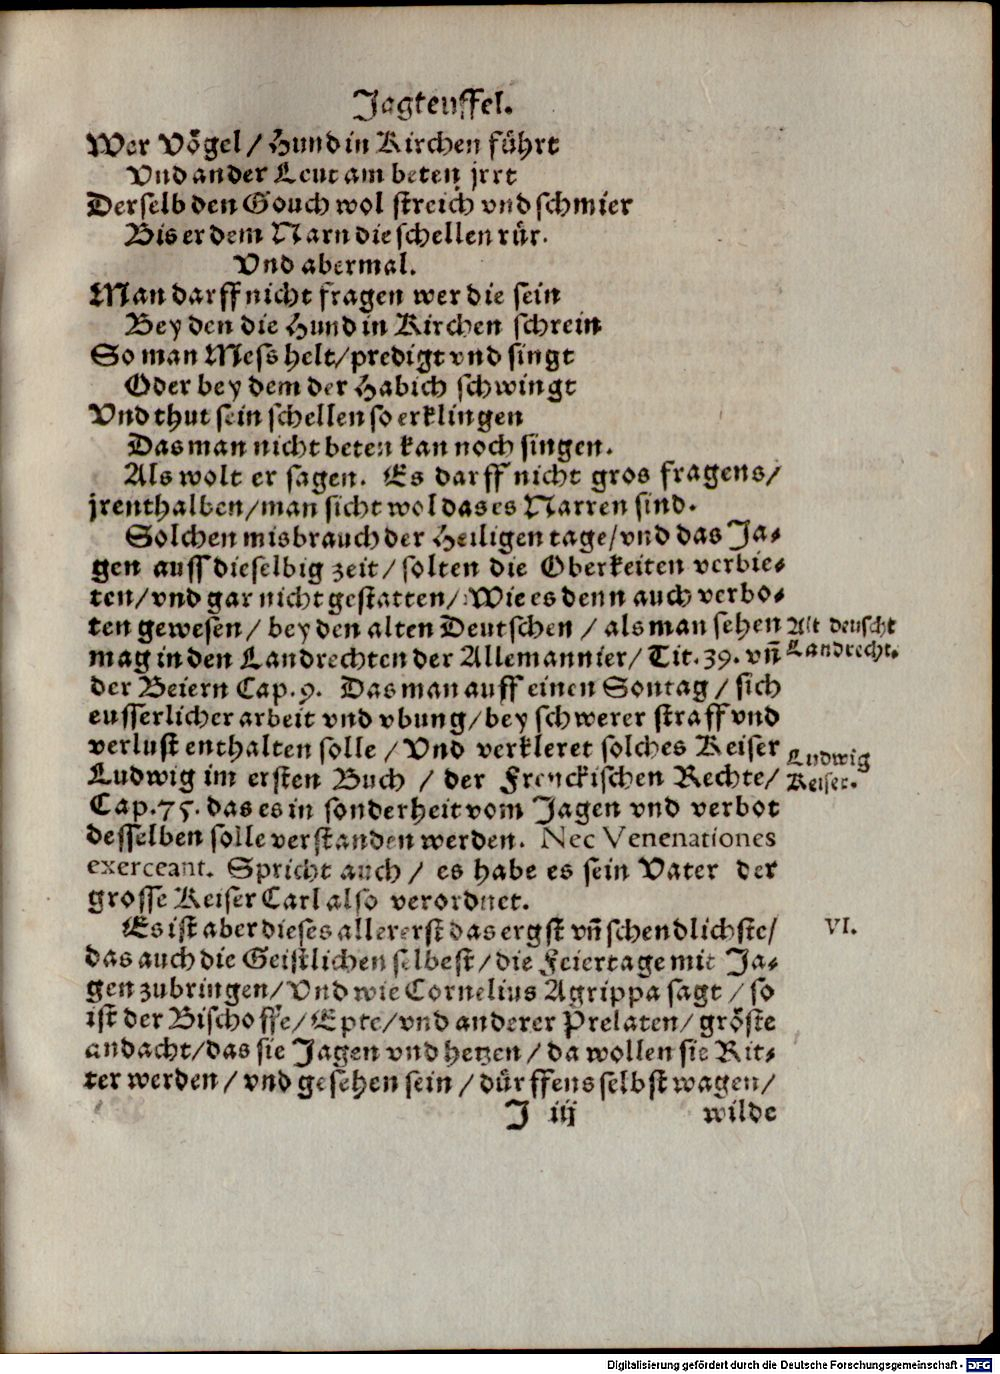 Jagteuffel.
Wer Vögel / Hund in Kirchen führt
Vnd ander Leut am beten jrrt
Derselb den Gouch wol streich vnd schmier
Bis er dem Narn die schellen rür.
Vnd abermal.
Man darff nicht fragen wer die sein
Bey den die Hund in Kirchen schrein
So man Mess helt / predigt vnd singt
Oder bey dem der Habich schwingt
Vnd thut sein schellen so erklingen
Das man nicht beten kan noch singen.
Als wolt er sagen. Es darff nicht gros fragens /
jrenthalben / man sicht wol das es Narren sind.
Solchen misbrauch der Heiligen tage / vnd das Ja-
gen auff dieselbig zeit / solten die Oberkeiten verbie-
ten / vnd gar nicht gestatten / Wie es denn auch verbo-
ten gewesen / bey den alten Deutschen / als man sehen Alt deuscht
mag in den Landrechten der Allemannier / Tit. 39. vñ Landrecht.
der Beiern Cap. 9. Das man auff einen Sontag / sich
eusserlicher arbeit vnd vbung / bey schwerer straff vnd
verlust enthalten solle / Vnd verkleret solches Keiser Ludwig
Ludwig im ersten Buch / der Frenckischen Rechte / Keiser.
Cap. 75. das es in sonderheit vom Jagen vnd verbot
desselben solle verstanden werden. Nec Venenationes
exerceant. Spricht auch / es habe es sein Vater der
grosse Keiser Carl also verordnet.
Es ist aber dieses allererst das ergst vñ schendlichste / VI.
das auch die Geistlichen selbest / die Feiertage mit Ja-
gen zubringen / Vnd wie Cornelius Agrippa sagt / so
ist der Bischoffe / Epte / vnd anderer Prelaten / gröste
andacht / das sie Jagen vnd hetzen / da wollen sie Rit-
ter werden / vnd gesehen sein / dürffens selbst wagen /
J iij wilde
Digitalisierung gefördert durch die Deutsche Forschungsgemeinschaft - DFG